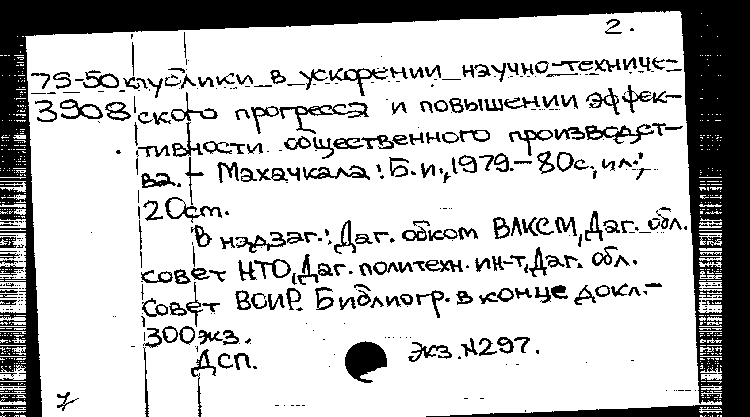 2.
79-50к публики в ускорении научно-техниче-
3908 ского прогресса и повышении эффек-
тивности общественного производст-
ва. - Махачкала: Б.и., 1979. - 80с, ил.;
20 ст.
В надзаг.: Даг. обком ВЛКСМ, Даг. обл.
совет НТО, Даг. политехн. ин-т, Даг. обл.
совет ВОИР. Библиогр. в конце докл. -
300 экз.
ДСП. Экз. N297.
7